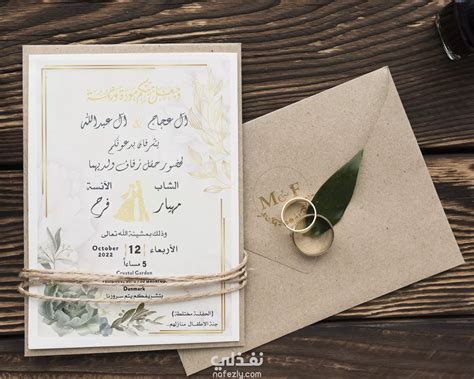 وجعل بينكم مودة ورحمة
آل عجاج & آل عبدالله
يتشرفان بدعوتكم
لحضور حفل زفاف ولديهما
الشاب الآنسة
مهيار فرح
وذلك بمشيئة الله تعالى
October 2022 12 الأربعاء
5 مساءاً
Crystal Garden
Danmark
وبتشريفكم يتم سرورنا
(الحفلة مختلطة)
جنة الاطفال منازلهم
M&F
نفذلي
nafezly.com